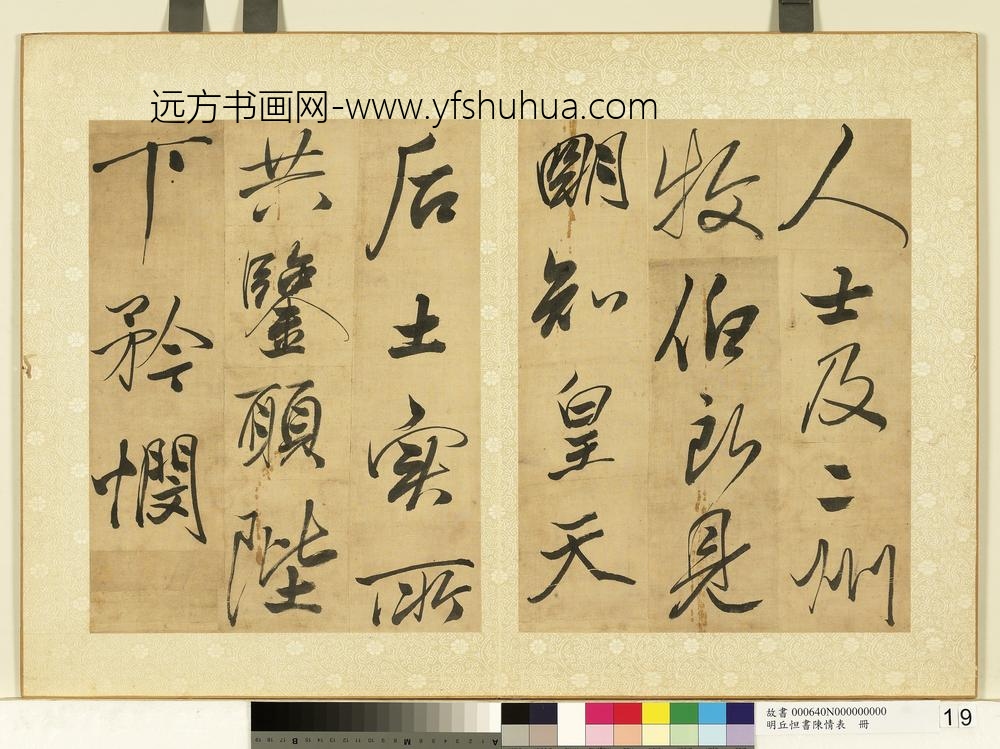 远方书画网-www.yfshuhua.com
人士及二州
牧伯所見
明知皇天
后土實所
共鑒願陛
下矜憫
故書 000640N000000000
明丘怛書陳情表 冊
19